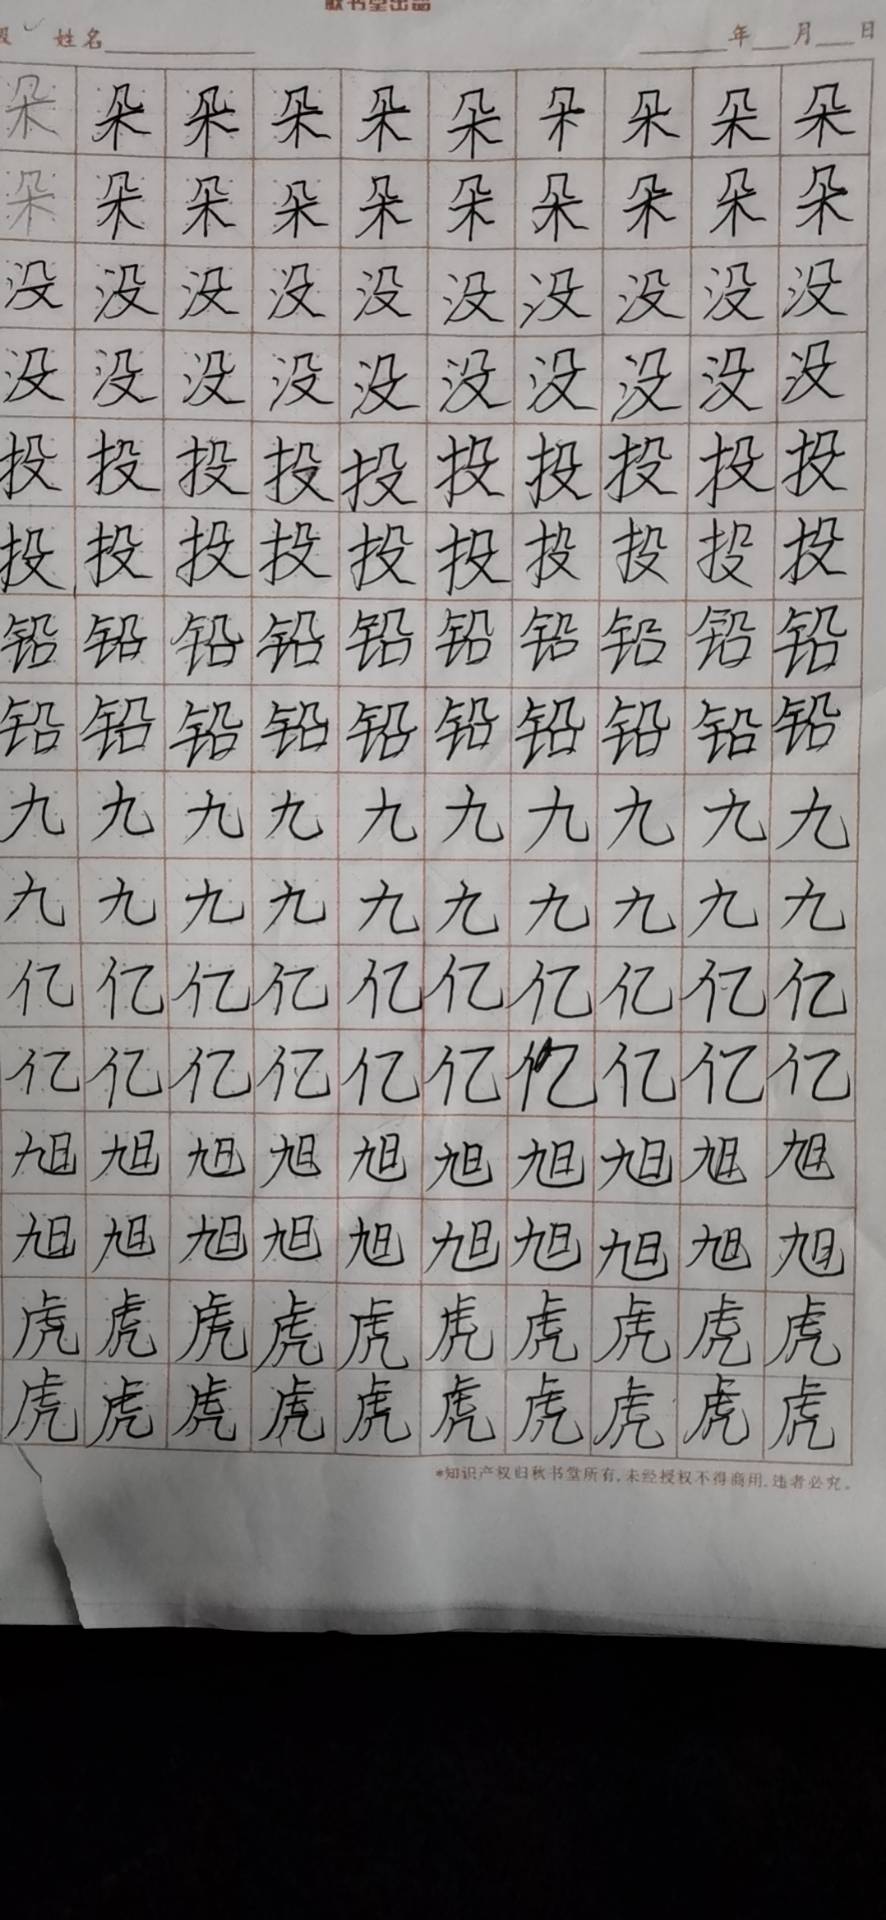 秋书堂出品
级 姓名 年 月 日
朵 朵 朵 朵 朵 朵 朵 朵 朵 朵
朵 朵 朵 朵 朵 朵 朵 朵 朵 朵
没 没 没 没 没 没 没 没 没 没
没 没 没 没 没 没 没 没 没 没
投 投 投 投 投 投 投 投 投 投
投 投 投 投 投 投 投 投 投 投
铅 铅 铅 铅 铅 铅 铅 铅 铅 铅
铅 铅 铅 铅 铅 铅 铅 铅 铅 铅
九 九 九 九 九 九 九 九 九 九
九 九 九 九 九 九 九 九 九 九
亿 亿 亿 亿 亿 亿 亿 亿 亿 亿
亿 亿 亿 亿 亿 亿 亿 亿 亿 亿
旭 旭 旭 旭 旭 旭 旭 旭 旭 旭
旭 旭 旭 旭 旭 旭 旭 旭 旭 旭
虎 虎 虎 虎 虎 虎 虎 虎 虎 虎
虎 虎 虎 虎 虎 虎 虎 虎 虎 虎
*知识产权归秋书堂所有,未经授权不得商用,违者必究。